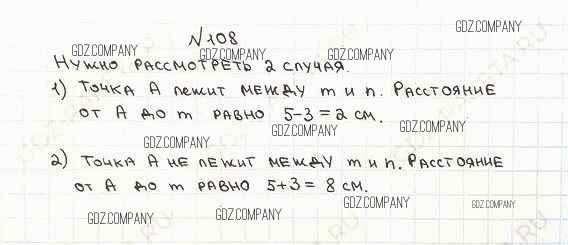 №108
Нужно рассмотреть 2 случая.
1) Точка A лежит между m и n. Расстояние
от A до m равно 5-3=2 см.
2) Точка A не лежит между m и n. Расстояние
от A до m равно 5+3= 8 см.
GDZ.COMPANY
GDZ.COMPANY
GDZ.COMPANY
GDZ.COMPANY
GDZ.COMPANY
GDZ.COMPANY
GDZ.COMPANY
GDZ.COMPANY
GDZ.COMPANY
GDZ.COMPANY
GDZ.COMPANY